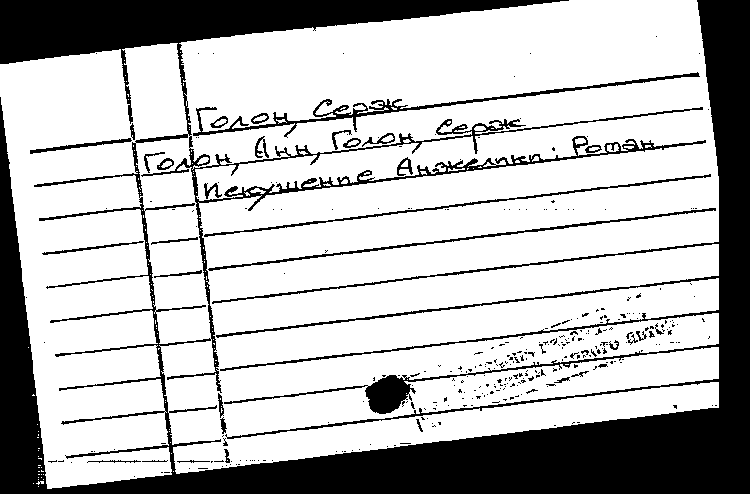 Голон, Серж
Голон, Анн, Голон, Серж
Искушение Анжелики: Роман.
первого автора